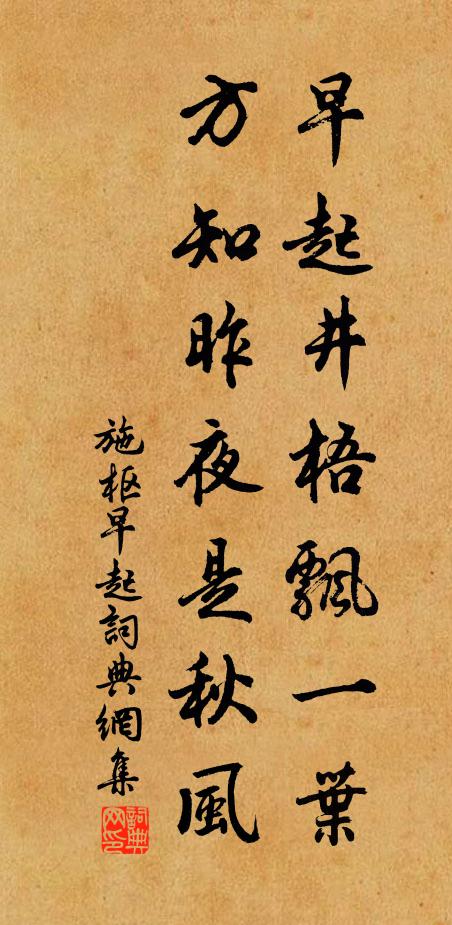 早起井梧飄一葉
方知昨夜是秋風
施枢早起詞典網集
詞典网印